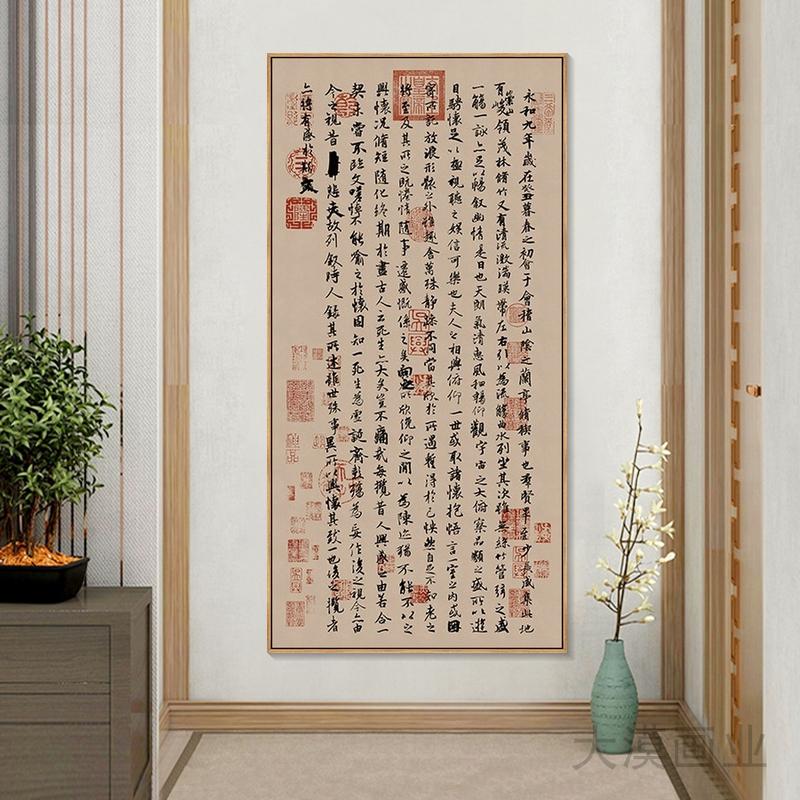 永和九年歲在癸丑暮春之初會于會稽山陰之蘭亭脩稧事也羣賢畢至少長咸集此地
有崇山峻領茂林脩竹又有清流激湍暎帶左右引以為流觴曲水列坐其次雖無絲竹管弦之盛
一觴一詠亦足以暢敘幽情是日也天朗氣清惠風和暢仰觀宇宙之大俯察品類之盛所以遊
目騁懷足以極視聽之娛信可樂也夫人之相與俯仰一世或取諸懷抱悟言一室之內或因
寄所託放浪形骸之外雖趣舍萬殊靜躁不同當其欣於所遇蹔得於己怏然自足不知老之
將至及其所之既惓情隨事遷感慨係之矣向之所欣俛仰之閒以為陳迹猶不能不以之
興懷況脩短隨化終期於盡古人云死生亦大矣豈不痛哉每攬昔人興感之由若合一
契未嘗不臨文嗟悼不能喻之於懷固知一死生為虛誕齊彭殤為妄作後之視今亦由
今之視昔悲夫故列敘時人錄其所述雖世殊事異所以興懷其致一也後之攬者
亦將有感於斯文
大漠画业